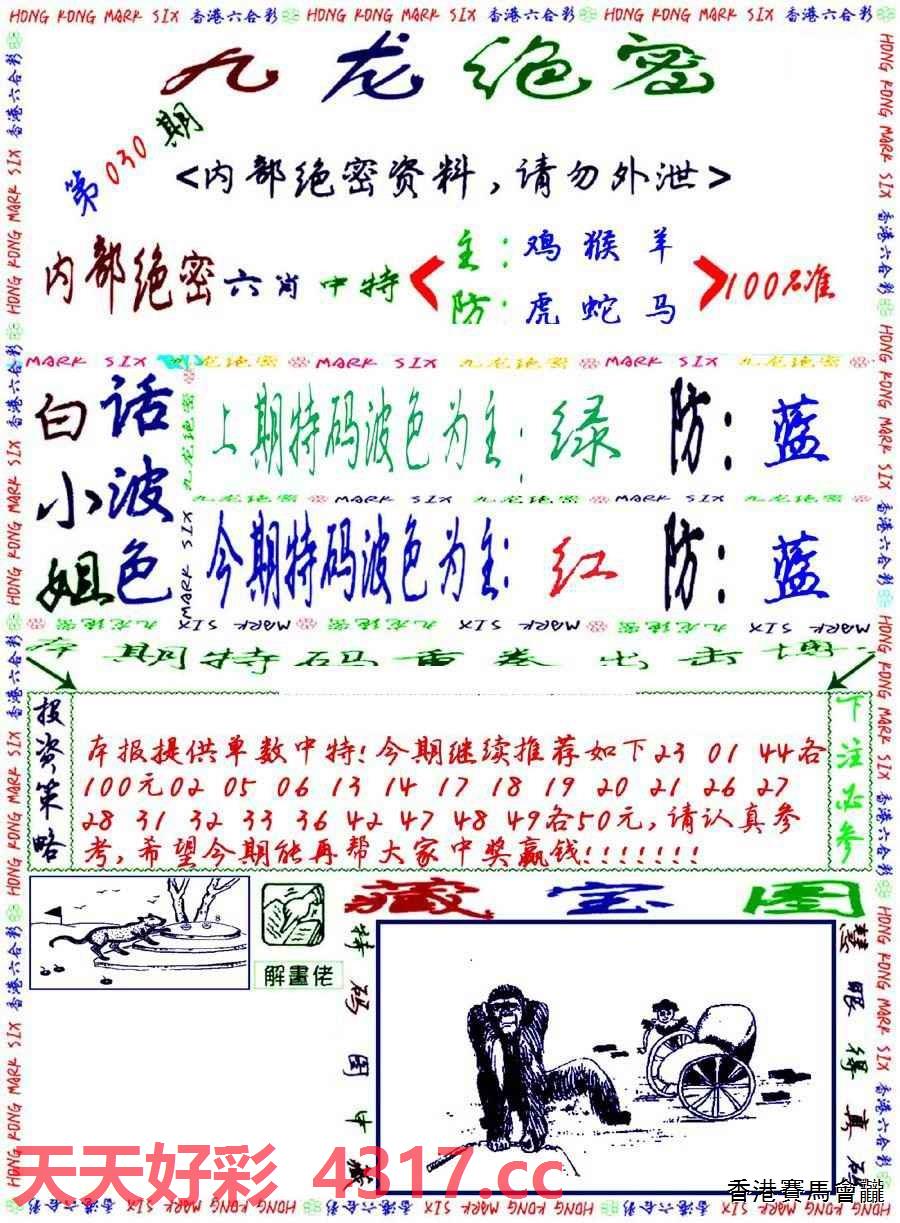 HONG KONG MARK SIX 香港六合彩 HONG KONG MARK SIX 香港六合彩 HONG KONG MARK SIX 香港六合彩
九龙绝密
第030期
<内部绝密资料,请勿外泄>
内部绝密六肖中特
主:鸡猴羊
防:虎蛇马
100%准
MARK SIX 九龙绝密 MARK SIX 九龙绝密 MARK SIX 九龙绝密
白小姐
话波色
上期特码波色为主:绿 防:蓝
九龙绝密 MARK SIX 九龙绝密 MARK SIX 九龙绝密
今期特码波色为主:红 防:蓝
投资策略
本报提供单数中特!今期继续推荐如下23 01 44各
100元02 05 06 13 14 17 18 19 20 21 26 27
28 31 32 33 36 42 47 48 49各50元,请认真参
考,希望今期能再帮大家中奖赢钱!!!!!!!
下注必参
解畫佬
藏宝图
特码图中
慧眼得真
天天好彩 4317.cc
香港賽馬會